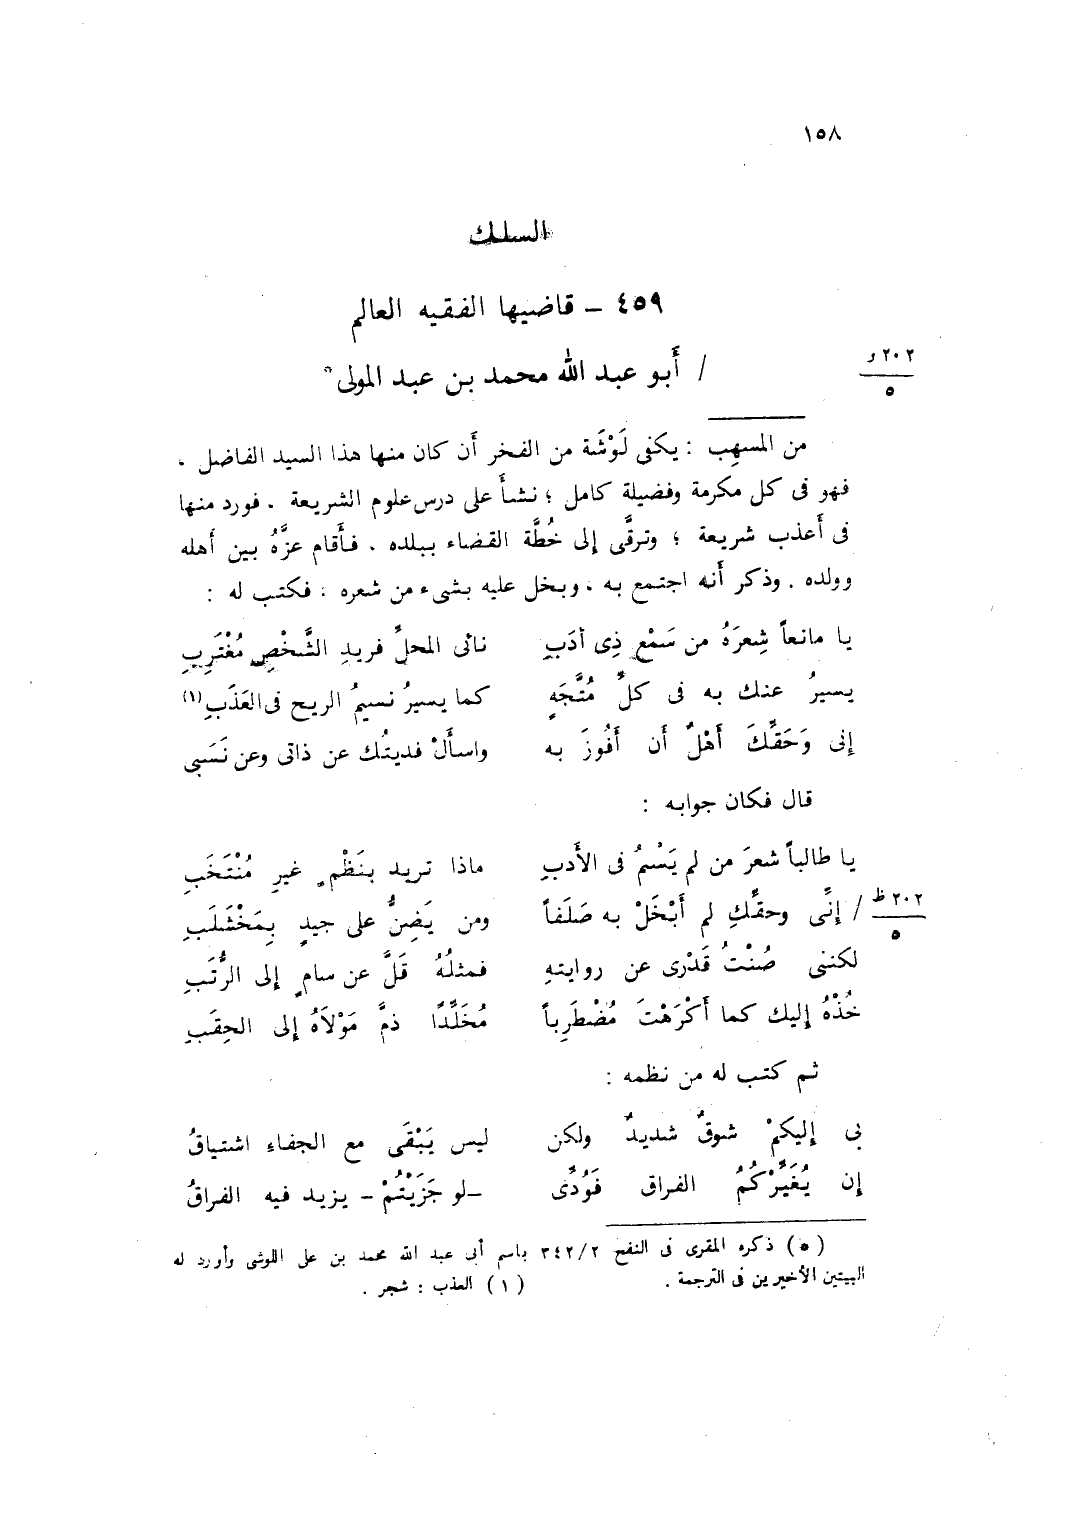 ١٥٨
السلك
٤٥٩ – قاضيها الفقيه العالم
٢٠٢ و
٥
/ أَبو عبد الله محمد بن عبد المولى*
من المسهِب : يكفى لَوْشَة من الفخر أَن كان منها هذا السيد الفاضل .
فهو فى كل مكرمة وفضيلة كامل ؛ نشأَ على درس علوم الشريعة . فورد منها
فى أَعذب شريعة ؛ وترقَّى إلى خُطَّة القضاء ببلده . فأَقام عزَّهُ بين أَهله
وولده . وذكر أَنه اجتمع به . وبخل عليه بشىء من شعره . فكتب له :
يا مانعاً شِعرَهُ من سَمْعِ ذِى أدَبِ    نائى المحلِّ فريدِ الشَّخْصِ مُغْتَرِبِ
يسيرُ عنك به فى كلِّ مُتَّجَهٍ    كما يسيرُ نسيمُ الريح فى العَذَبِ(١)
إنى وَحَقِّكَ أَهْلٌ أَن أَفُوزَ به    واسأَلْ فديتُك عن ذاتى وعن نَسَبى
قال فكان جوابه :
يا طالباً شعرَ من لم يَسْمُ فى الأَدبِ    ماذا تريد بنَظْمٍ غيرِ مُنْتَخَبِ
٢٠٢ ظ
٥
/ إنِّى وحقِّكِ لم أَبْخَلْ به صَلَفاً    ومن يَضِنُّ على جيدٍ بِمَخْشَلَبِ
لكننى صُنْتُ قَدْرى عن روايتهِ    فمثلُهُ قَلَّ عن سامٍ إلى الرُّتَبِ
خُذْهُ إليك كما أَكْرَهْتَ مُضْطَرِباً    مُخَلِّدًا ذمَّ مَوْلاَهُ إلى الحِقَبِ
ثم كتب له من نظمه :
بى إليكمْ شوقٌ شديدٌ ولكن    ليس يَبْقَى مع الجفاء اشتياقُ
إن يُغَيِّرْكُمُ الفراق فَوُدِّى    –لو جَزَيْتُمْ– يزيد فيه الفراقُ
(*) ذكره المقرى فى النفح ٣٤٢/٢ باسم أبى عبد الله محمد بن على اللوشى وأورد له
البيتين الأخيرين فى الترجمة .    (١) العذب : شجر .